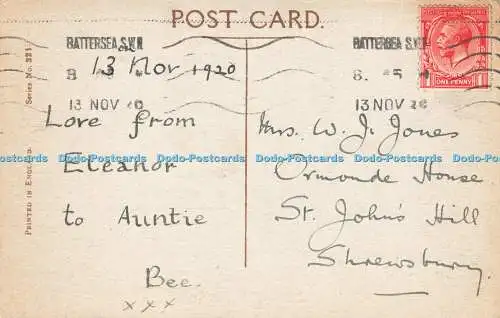 POST CARD.
BATTERSEA S.W.11
13 NOV 20
BATTERSEA S.W.11
13 NOV 20
ONE PENNY
13 Nov 1920
Love from
Eleanor
to Auntie
Bee.
x x x
Mrs. W. J. Jones
Ormonde House
St. John's Hill
Shrewsbury.
Series No. 331
PRINTED IN ENGLAND.
Dodo-Postcards Dodo-Postcards Dodo-Postcards Dodo-Postcards Dodo-Postcards